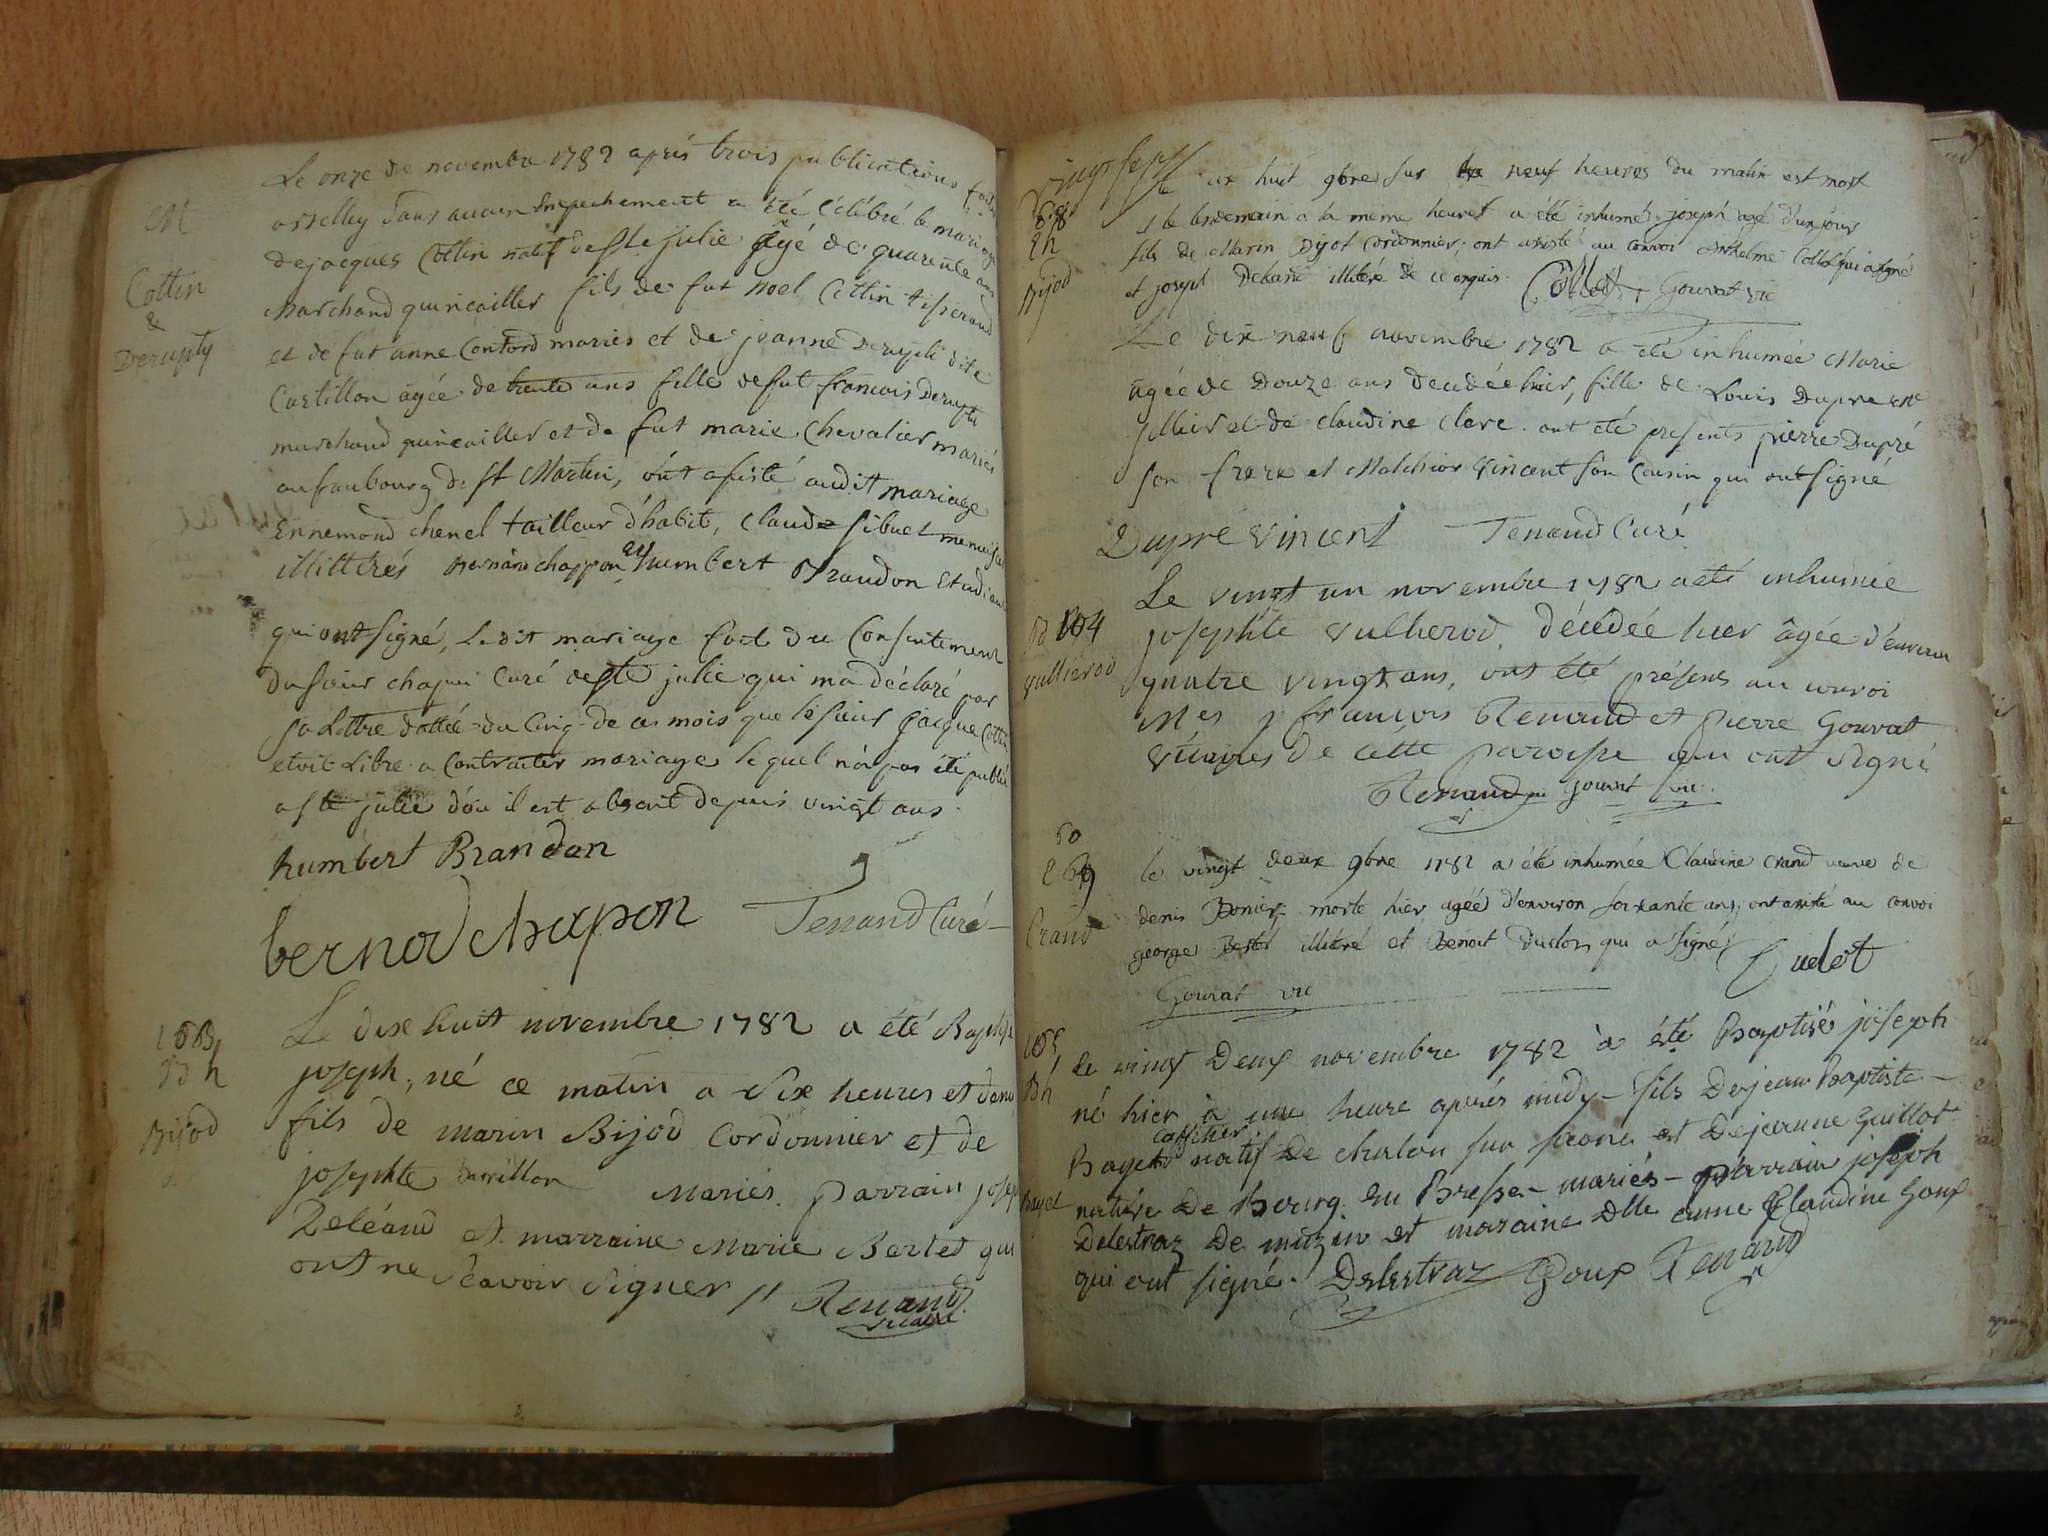 M
Cottin
&
Derupty
Le onze de novembre 1782 après trois publications
sans aucun Empechement a été Célébré le mariage
de jacques Cottin natif de Ste julie âgé de quarente ans
Marchand quincailler fils de fut noel Cottin tisserand
et de fut anne Contord mariés et de jeanne Derupti dite
Castillon agée de trente ans fille de fut françois Derupti
marchand quincailler et de fut marie Chevalier mariés
au faubourg de St Martin, ont assisté audit mariage
Ennemond chenel tailleur d'habit, Claude sibuet menuisier
illittérés Bernard chappon et humbert Brandon Etudiant
qui ont signé, Le dit mariage fait du Consentement
du sieur chapui Curé de ste julie qui m'a déclaré par
sa Lettre dattée du Cinq de ce mois que le sieur jacque Cottin
etoit Libre a Contracter mariage lequel n'a pas été publié
a ste julie d'ou il est absent depuis vingt ans.
humbert Brandon
bernod chapon Tenand Curé
Bh
Bijod
Le dix huit novembre 1782 a été Baptisé
joseph, né ce matin a Six heures et demi
fils de marin Bijod Cordonnier et de
josephte Mariés parrain joseph
et marraine Marie Bertet qui
ont ne Scavoir Signer // Renaud
vicaire
vingt sept
Bijod
Le dix huit 9bre sur neuf heures du matin est mort
et le lendemain a la même heure a été inhumé joseph agé d'un jour
fils de Marin Bijot Cordonnier; ont assisté au convoi Anthelme Collet qui a signé
et joseph illitéré de ce enquis. Collet Gouvat vic
Le dix neuf novembre 1782 a été inhumée Marie
agée de Douze ans decédée hier, fille de Louis Dupre
sellier et de claudine Clerc. ont été presents pierre Dupré
son frere et Melchior Vincent son Cousin qui ont signé
Dupre Vincent Tenand Curé
104
Vullierod
Le vingt un novembre 1782 a été inhumée
josephte Vullierod décédée hier âgée d'environ
quatre vingt ans, ont été présens au convoi
Mes françois Renaud et pierre Gouvat
vicaires de cette paroisse qui ont signé
Renaud Gouvat vic.
Crand
le vingt deux 9bre 1782 a été inhumée Claudine Crand veuve de
denis Bonier morte hier agée d'environ soixante ans, ont assité au convoi
george illitéré et Benoit Duclot qui a signé
Duclot
Gouvat vic
Bh
Bayet
Le vingt Deux novembre 1782 à été Baptisé joseph
né hier à une heure après midy - fils De jean Baptiste
caffetier
Bayet natif De chalon sur saone et De jeanne Guillot
native De Bourg en Bresse - mariés - parrain joseph
Delestraz De et maraine Dlle anne Claudine Goux
qui ont signé. Delestraz Goux Renaud